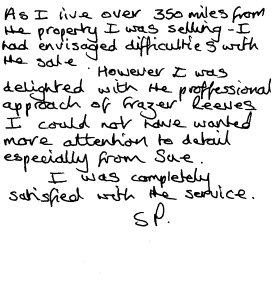 As I live over 350 miles from
the property I was selling - I
had envisaged difficulties with
the sale.
However I was
delighted with the proffessional
approach of Frazer Reeves
I could not have wanted
more attention to detail
especially from Sue.
I was completely
satisfied with the service.
SP.